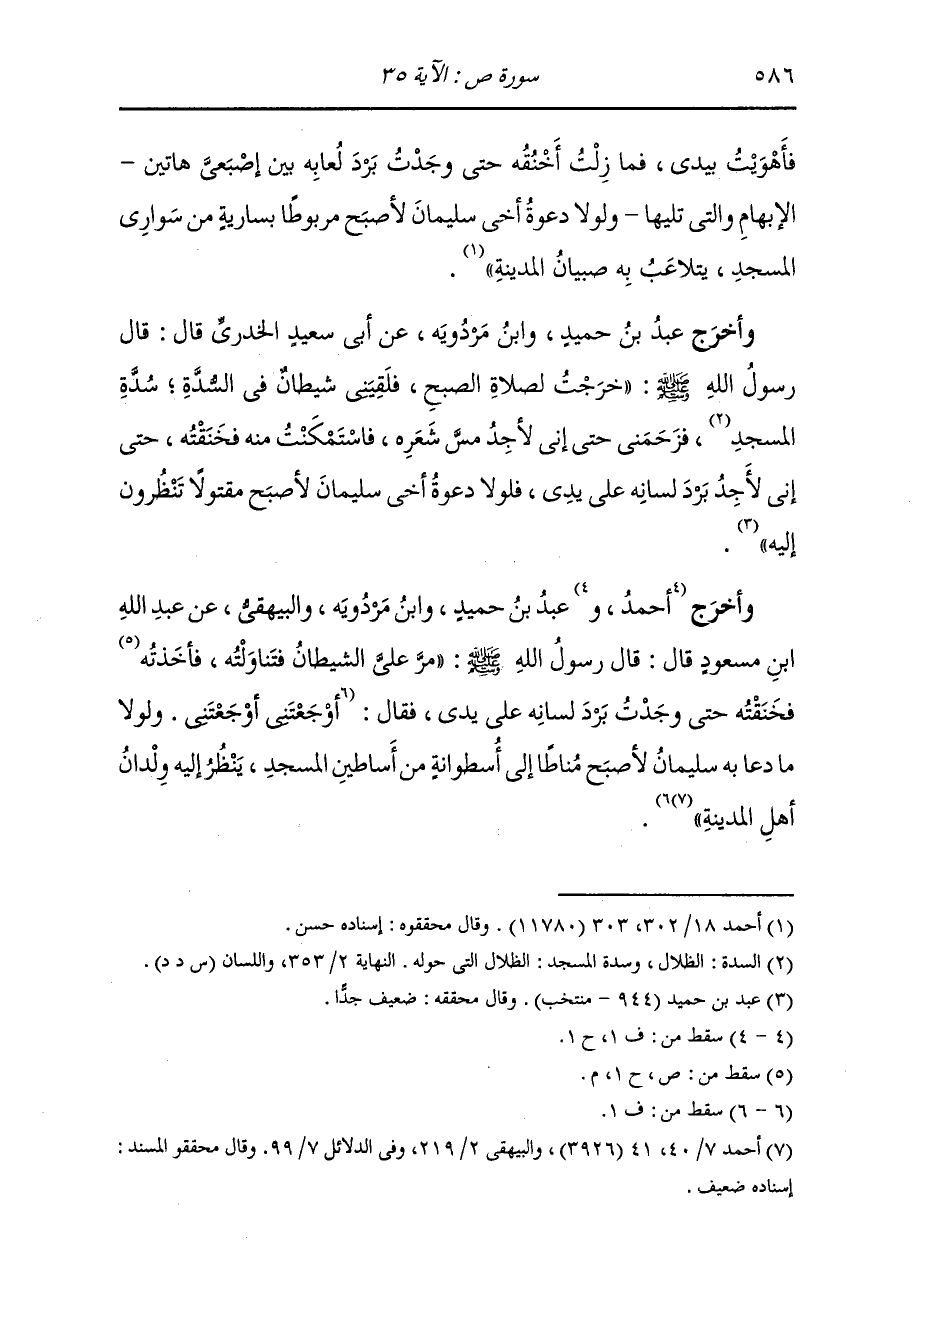 ٥٨٦
سورة ص : الآية ٣٥
فأَهْوَيْتُ بيدى ، فما زِلْتُ أَخْنُقُه حتى وجَدْتُ بَرْدَ لُعابِه بين إصْبَعىَّ هاتين –
الإبهامِ والتى تليها – ولولا دعوةُ أخى سليمانَ لأصبَح مربوطًا بساريةٍ من سَوارِى
المسجدِ ، يتلاعَبُ به صبيانُ المدينةِ»(١) .
وأخرَج عبدُ بنُ حميدٍ ، وابنُ مَرْدُويَه ، عن أبى سعيدٍ الخدرىِّ قال : قال
رسولُ اللهِ ﷺ : «خرَجْتُ لصلاةِ الصبحِ ، فلَقِيَنِى شيطانٌ فى السُّدَّةِ ؛ سُدَّةِ
المسجدِ(٢) ، فزَحَمَنى حتى إنى لأجِدُ مسَّ شَعَرِه ، فاسْتَمْكَنْتُ منه فخَنَقْتُه ، حتى
إنى لأَجِدُ بَرْدَ لسانِه على يدِى ، فلولا دعوةُ أخى سليمانَ لأصبَح مقتولًا تَنْظُرون
إليه»(٣) .
وأخرَج (٤أحمدُ ، و٤) عبدُ بنُ حميدٍ ، وابنُ مَرْدُويَه ، والبيهقىُّ ، عن عبدِ اللهِ
ابنِ مسعودٍ قال : قال رسولُ اللهِ ﷺ : «مرَّ علىَّ الشيطانُ فتَناوَلْتُه ، فأخَذتُه(٥)
فخَنَقْتُه حتى وجَدْتُ بَرْدَ لسانِه على يدى ، فقال : (٦أوْجَعْتَنِى أوْجَعْتَنِى . ولولا
ما دعا به سليمانُ لأصبَح مُناطًا إلى أُسطوانةٍ من أَساطينِ المسجدِ ، يَنْظُرُ إليه وِلْدانُ
أهلِ المدينةِ»(٧)٦) .
(١) أحمد ١٨/ ٣٠٢، ٣٠٣ (١١٧٨٠) . وقال محققوه : إسناده حسن .
(٢) السدة : الظلال ، وسدة المسجد : الظلال التى حوله . النهاية ٢/ ٣٥٣، واللسان (س د د) .
(٣) عبد بن حميد (٩٤٤ – منتخب) . وقال محققه : ضعيف جدًّا .
(٤ – ٤) سقط من : ف ١، ح ١.
(٥) سقط من : ص ، ح ١، م .
(٦ – ٦) سقط من : ف ١.
(٧) أحمد ٧/ ٤٠، ٤١ (٣٩٢٦) ، والبيهقى ٢/ ٢١٩، وفى الدلائل ٧/ ٩٩. وقال محققو المسند :
إسناده ضعيف .